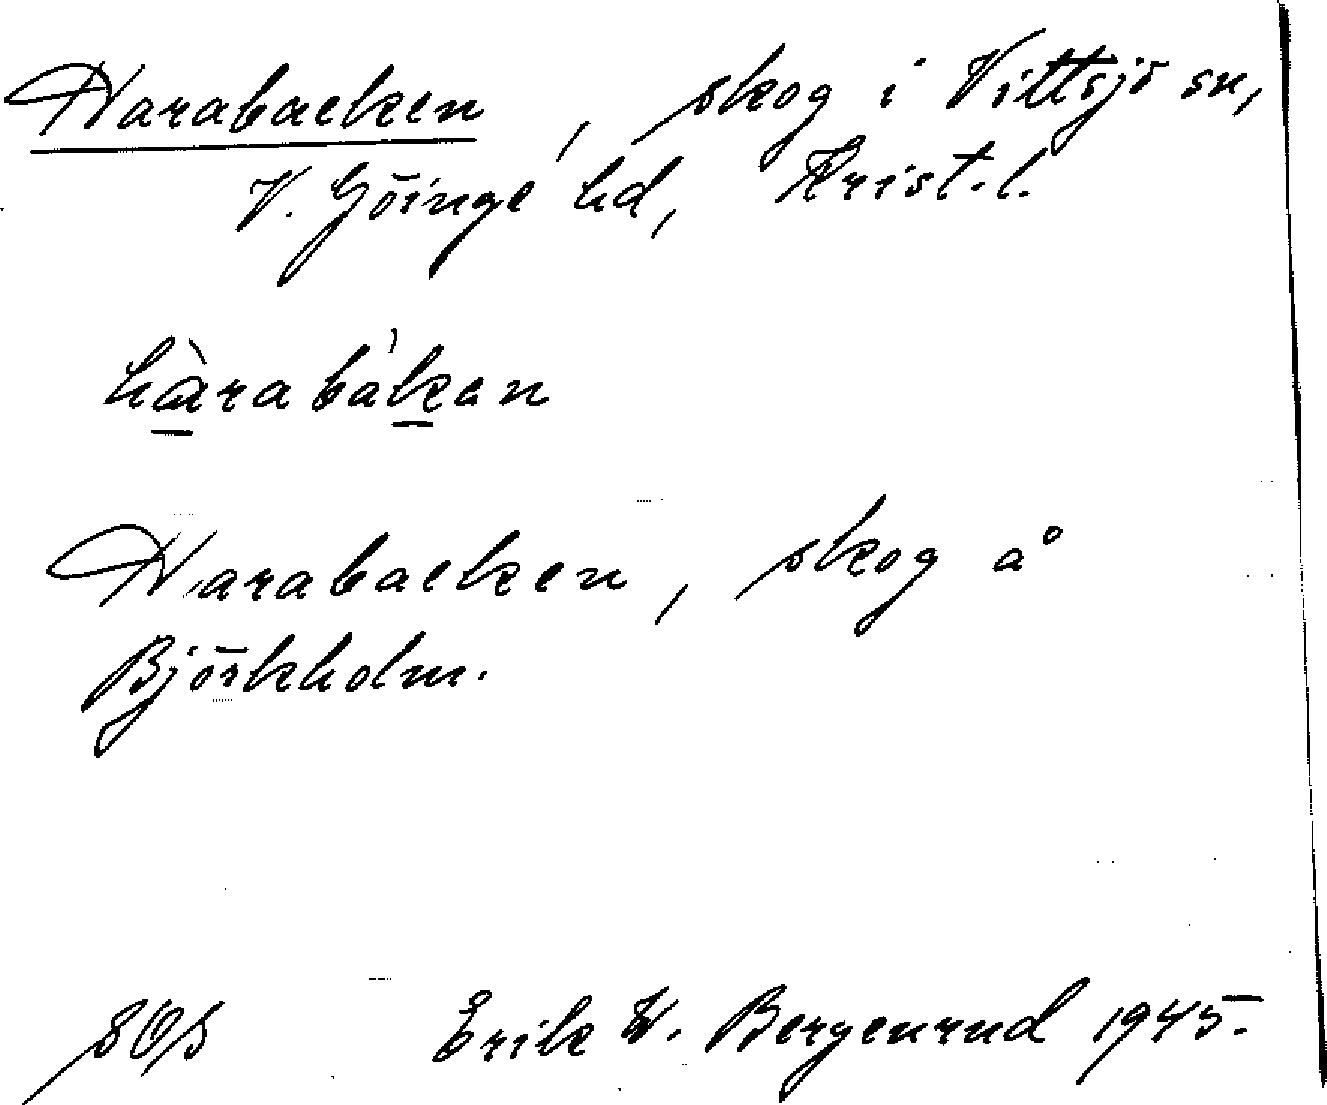 Harabacken, skog i Vittsjö sn,
V. Göinge hd, Krist. l.
hàrabàkan
Harabacken, skog å
Björkholm.
SOS Erik W. Bergenrud 1945.